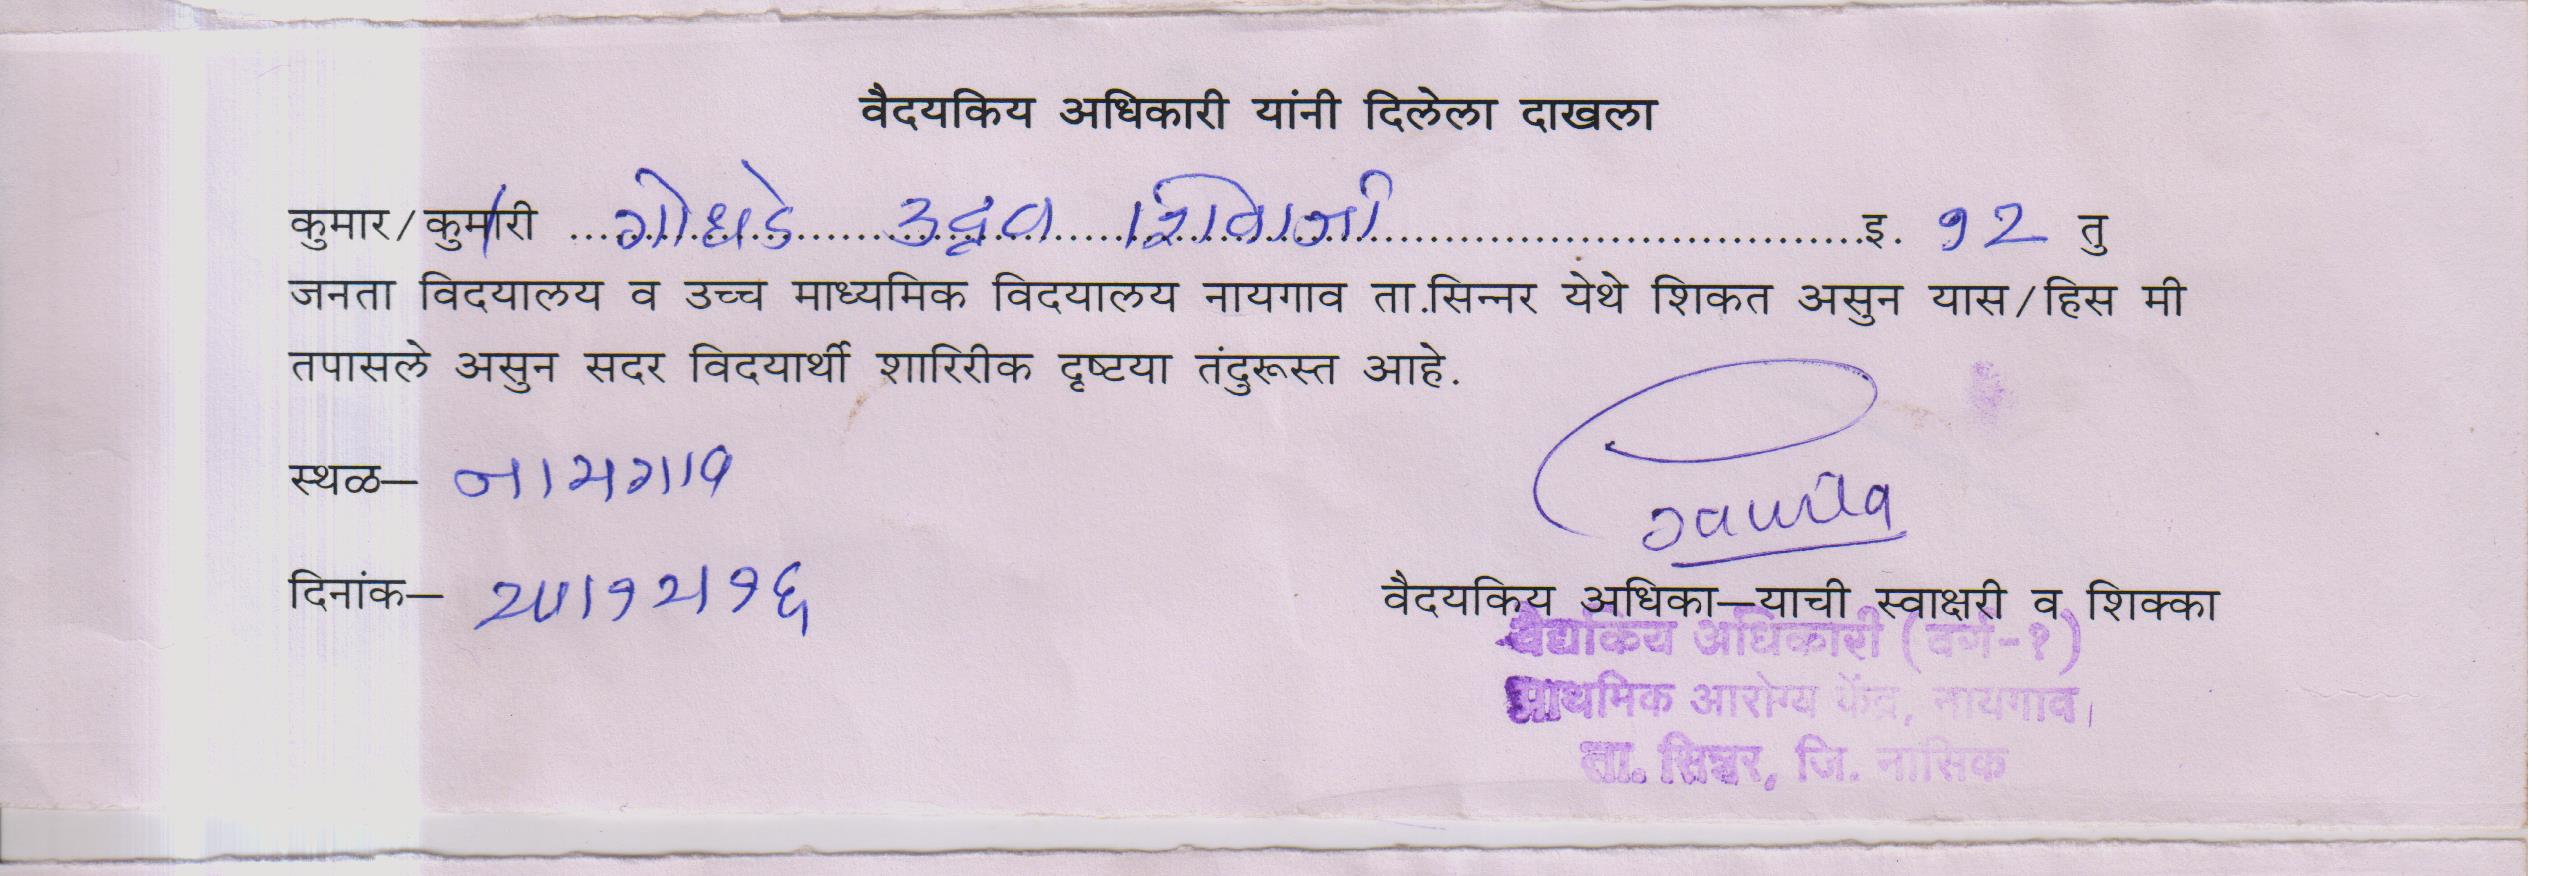 वैदयकिय अधिकारी यांनी दिलेला दाखला
कुमार/कुमारी ........ गोधडे उद्धव शिवाजी ........ इ. १२ तु
जनता विदयालय व उच्च माध्यमिक विदयालय नायगाव ता.सिन्नर येथे शिकत असुन यास/हिस मी
तपासले असुन सदर विदयार्थी शारिरीक दृष्टया तंदुरूस्त आहे.
स्थळ– नायगाव
दिनांक– २०।१२।१६
वैदयकिय अधिका–याची स्वाक्षरी व शिक्का
वैद्यकिय अधिकारी (वर्ग-१)
प्राथमिक आरोग्य केंद्र, नायगाव।
ता. सिन्नर, जि. नासिक